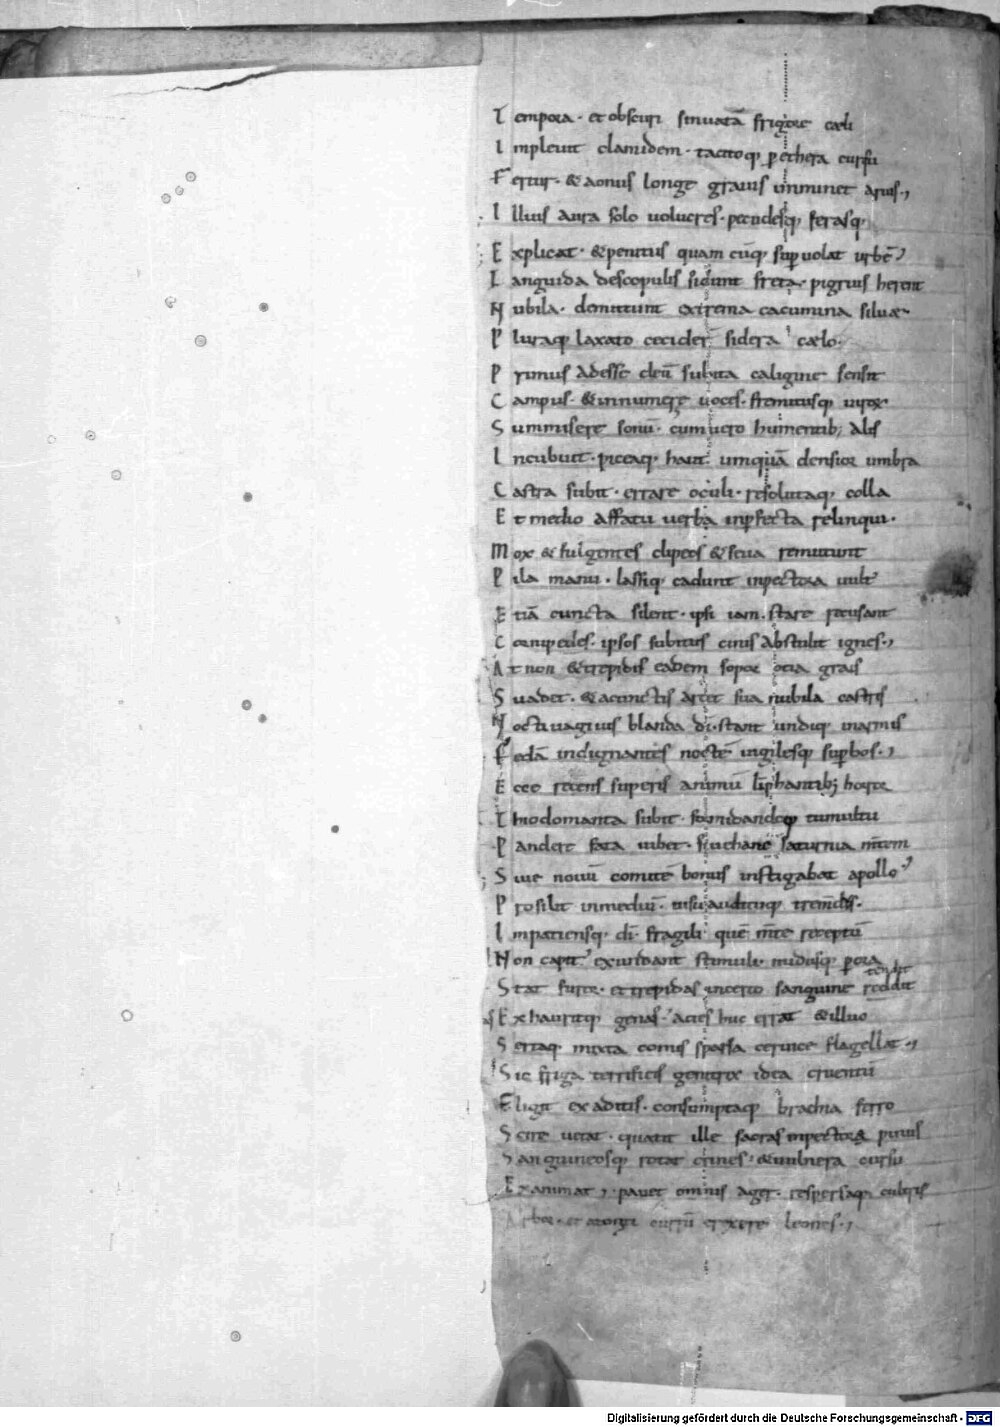 Tempora · et obscuri sinuatā frigore cæli
Impleuit clamidem · tacitoq; p ethera cursu
Fertur · & aonius longe grauis imminet aruis ·,
Illius aura solo uolucres · pecudesq; ferasq;
Explicat · & penitus quam cūq; sup uolat urbē
Languida descopulis sidunt freta · pigrius herent
Nubila · demittunt extrema cacumina siluæ
Pluraq; laxato cecider sidera cælo ·
Primus adesse deū subita caligine sensit
Campus · & innumere uoces · fremitusq; uirorꝝ
Summisere sonū · cum uero humentib; alis
Incubuit · piceaq; haut umquā densior umbra
Castra subit · errare oculi · resolutaq; colla
Et medio affatu uerba inpfecta relinqui ·
Mox & fulgentes clipeos & seua remittunt
Pila manu · lassiq; cadunt inpectora uult
Etiā cuncta silent · ipsi iam · stare recusant
Cornipedes · ipsos subitus cinis abstulit ignes ·,
At non & trepidis eadem sopor otia grais
Suadet · & aciunctis arcet sua nubila castris
Noctiuagi uis blanda di · stant undiq; in armis
Fedā indignantes noctē uigilesq; supbos ·,
Ecce recens superis animū limphantib; horror
Thiodomanta subit · formidandoq; tumultu
Pandere fata iubet · siue hanc saturnia mtem
Siue nouū comitē bonus instigabat apollo
Prosilit in mediū · uisu audituq; tremdꝰ ·
Impatiensq; di · fragili quē mte receptū
Non capit exundant stimuli · nudusq; p ora
tendit
Stat furor · et trepidas incerto sanguine reddit
Exhauritq; genas · acies huc errat & illuc
Sertaq; mixta comis sparsa ceruice flagellat ·,
Sic friga terrificis genitrix idea cruentū
Eligit ex aditis · consumptaq; brachia ferro
Scire uetat · quatit ille sacras inpectora pinus
Sanguineosq; rotat crines · & uulnera cursu
Exanimat · pauet omnis ager · respersaq; cultris
Arbor · et currū erexere leones ·,
Digitalisierung gefördert durch die Deutsche Forschungsgemeinschaft - DFG